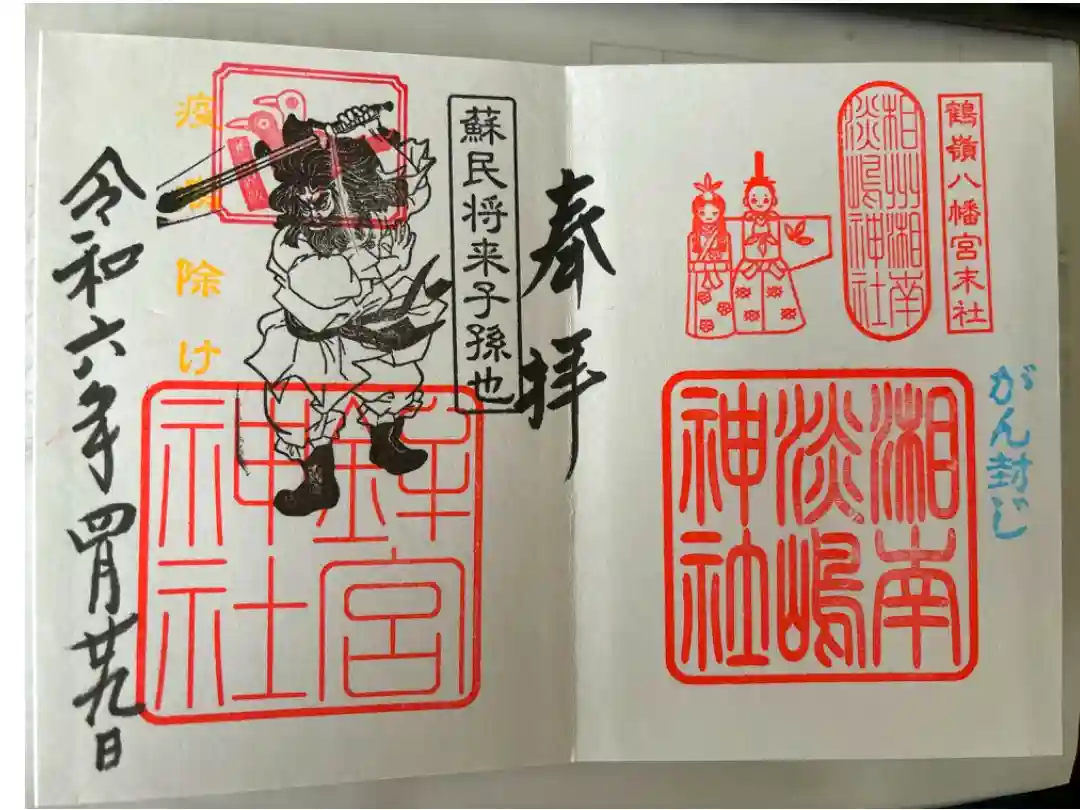 鶴嶺八幡宮末社
相州湘南
淡嶋神社
がん封じ
湘南
淡嶋
神社
奉拝
蘇民将来子孫也
疫 除け
宮
神社
令和六年四月廿九日